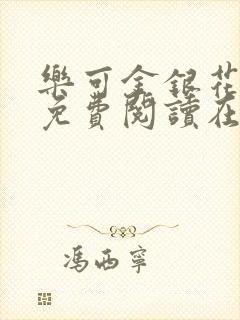 樂可金銀花
免費閱讀在
馮西寧